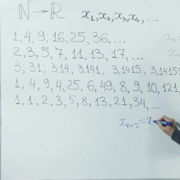 ℕ → ℝ x₁, x₂, x₃, x₄, ...
1, 4, 9, 16, 25, 36, ...
2, 3, 5, 7, 11, 13, 17, ...
3; 3,1; 3,14; 3,141; 3,1415; 3,1415
1, 4, 9, 4, 25, 6, 49, 8, 9, 10, 121
1, 1, 2, 3, 5, 8, 13, 21, 34, ...
xₙ₊₂ =